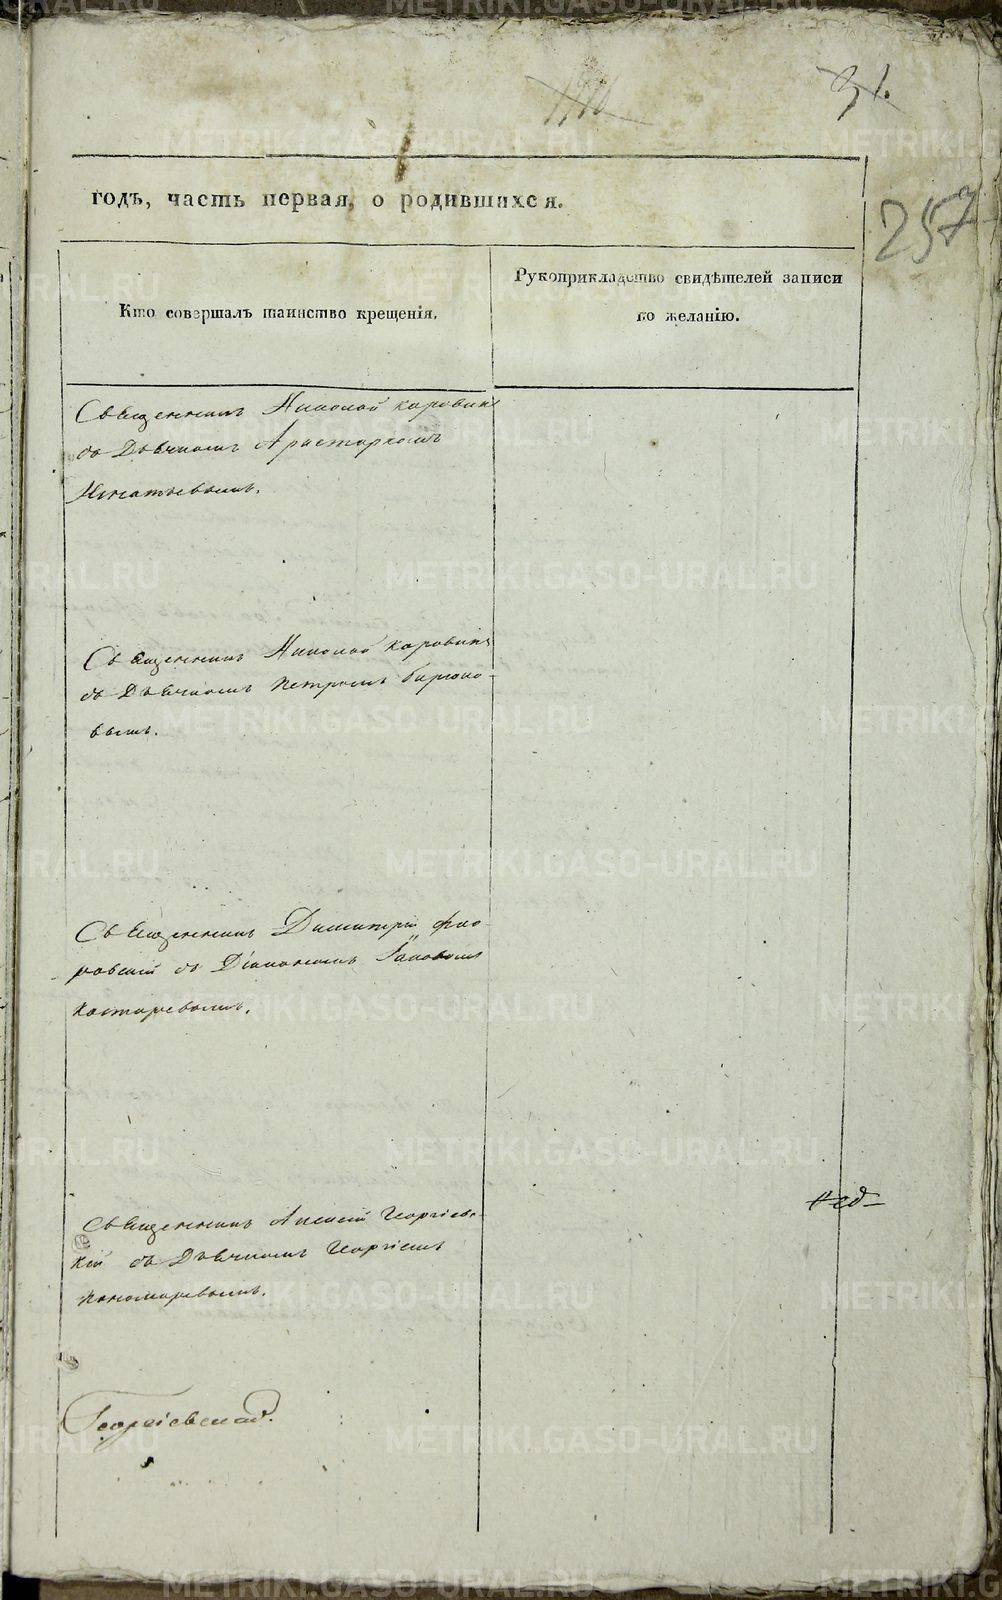 31.
257
годъ, часть первая, о родившихся.
Кто совершалъ таинство крещенія.
Рукоприкладство свидѣтелей записи
по желанію.
Священникъ Николай Коровинъ
съ Дьячкомъ Аристархомъ
Игнатьевымъ.
Священникъ Николай Коровинъ
съ Дьячкомъ Петромъ Бирюко-
вымъ.
Священникъ Димитрій Фло-
ровскій съ Діакономъ Іаковомъ
Костаревымъ.
Священникъ Алексій Георгіевс-
кій съ Дьячкомъ Георгіемъ
Пономаревымъ.
METRIKI.GASO-URAL.RU